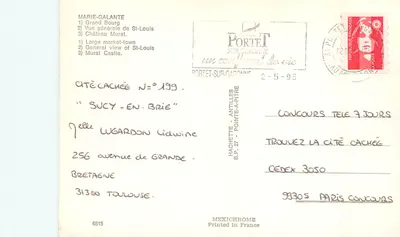 MARIE-GALANTE
1) Grand Bourg
2) Vue générale de St-Louis
3) Château Murat.
1) Large market-town
2) General view of St-Louis
3) Murat Castle.
PORTET
PORTET-SUR-GARONNE
2-5-96
CITÉ CACHÉE N=° 199
"SUCY-EN-BRIE"
Melle LUGARDON Lidwine
256 avenue de GRANDE-
BRETAGNE
31300 TOULOUSE.
HACHETTE - ANTILLES
B.P. 37 - POINTE-A-PITRE
CONCOURS TELE 7 JOURS
TROUVEZ LA CITÉ CACHÉE
CEDEX 3050
99305 PARIS CONCOURS
6015
MEXICHROME
Printed in France